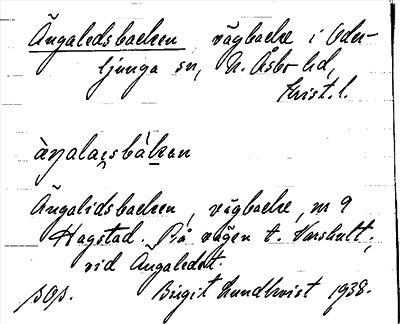 Ängaledsbacken, vägbacke i Oder-
ljunga sn, N. Åsbo hd,
Krist. l.
Ängalidsbacken, vägbacke, m 9
Hagstad. På vägen t. Varshult,
vid Ängaledet.
pop. Birgit Lundkvist 1938.